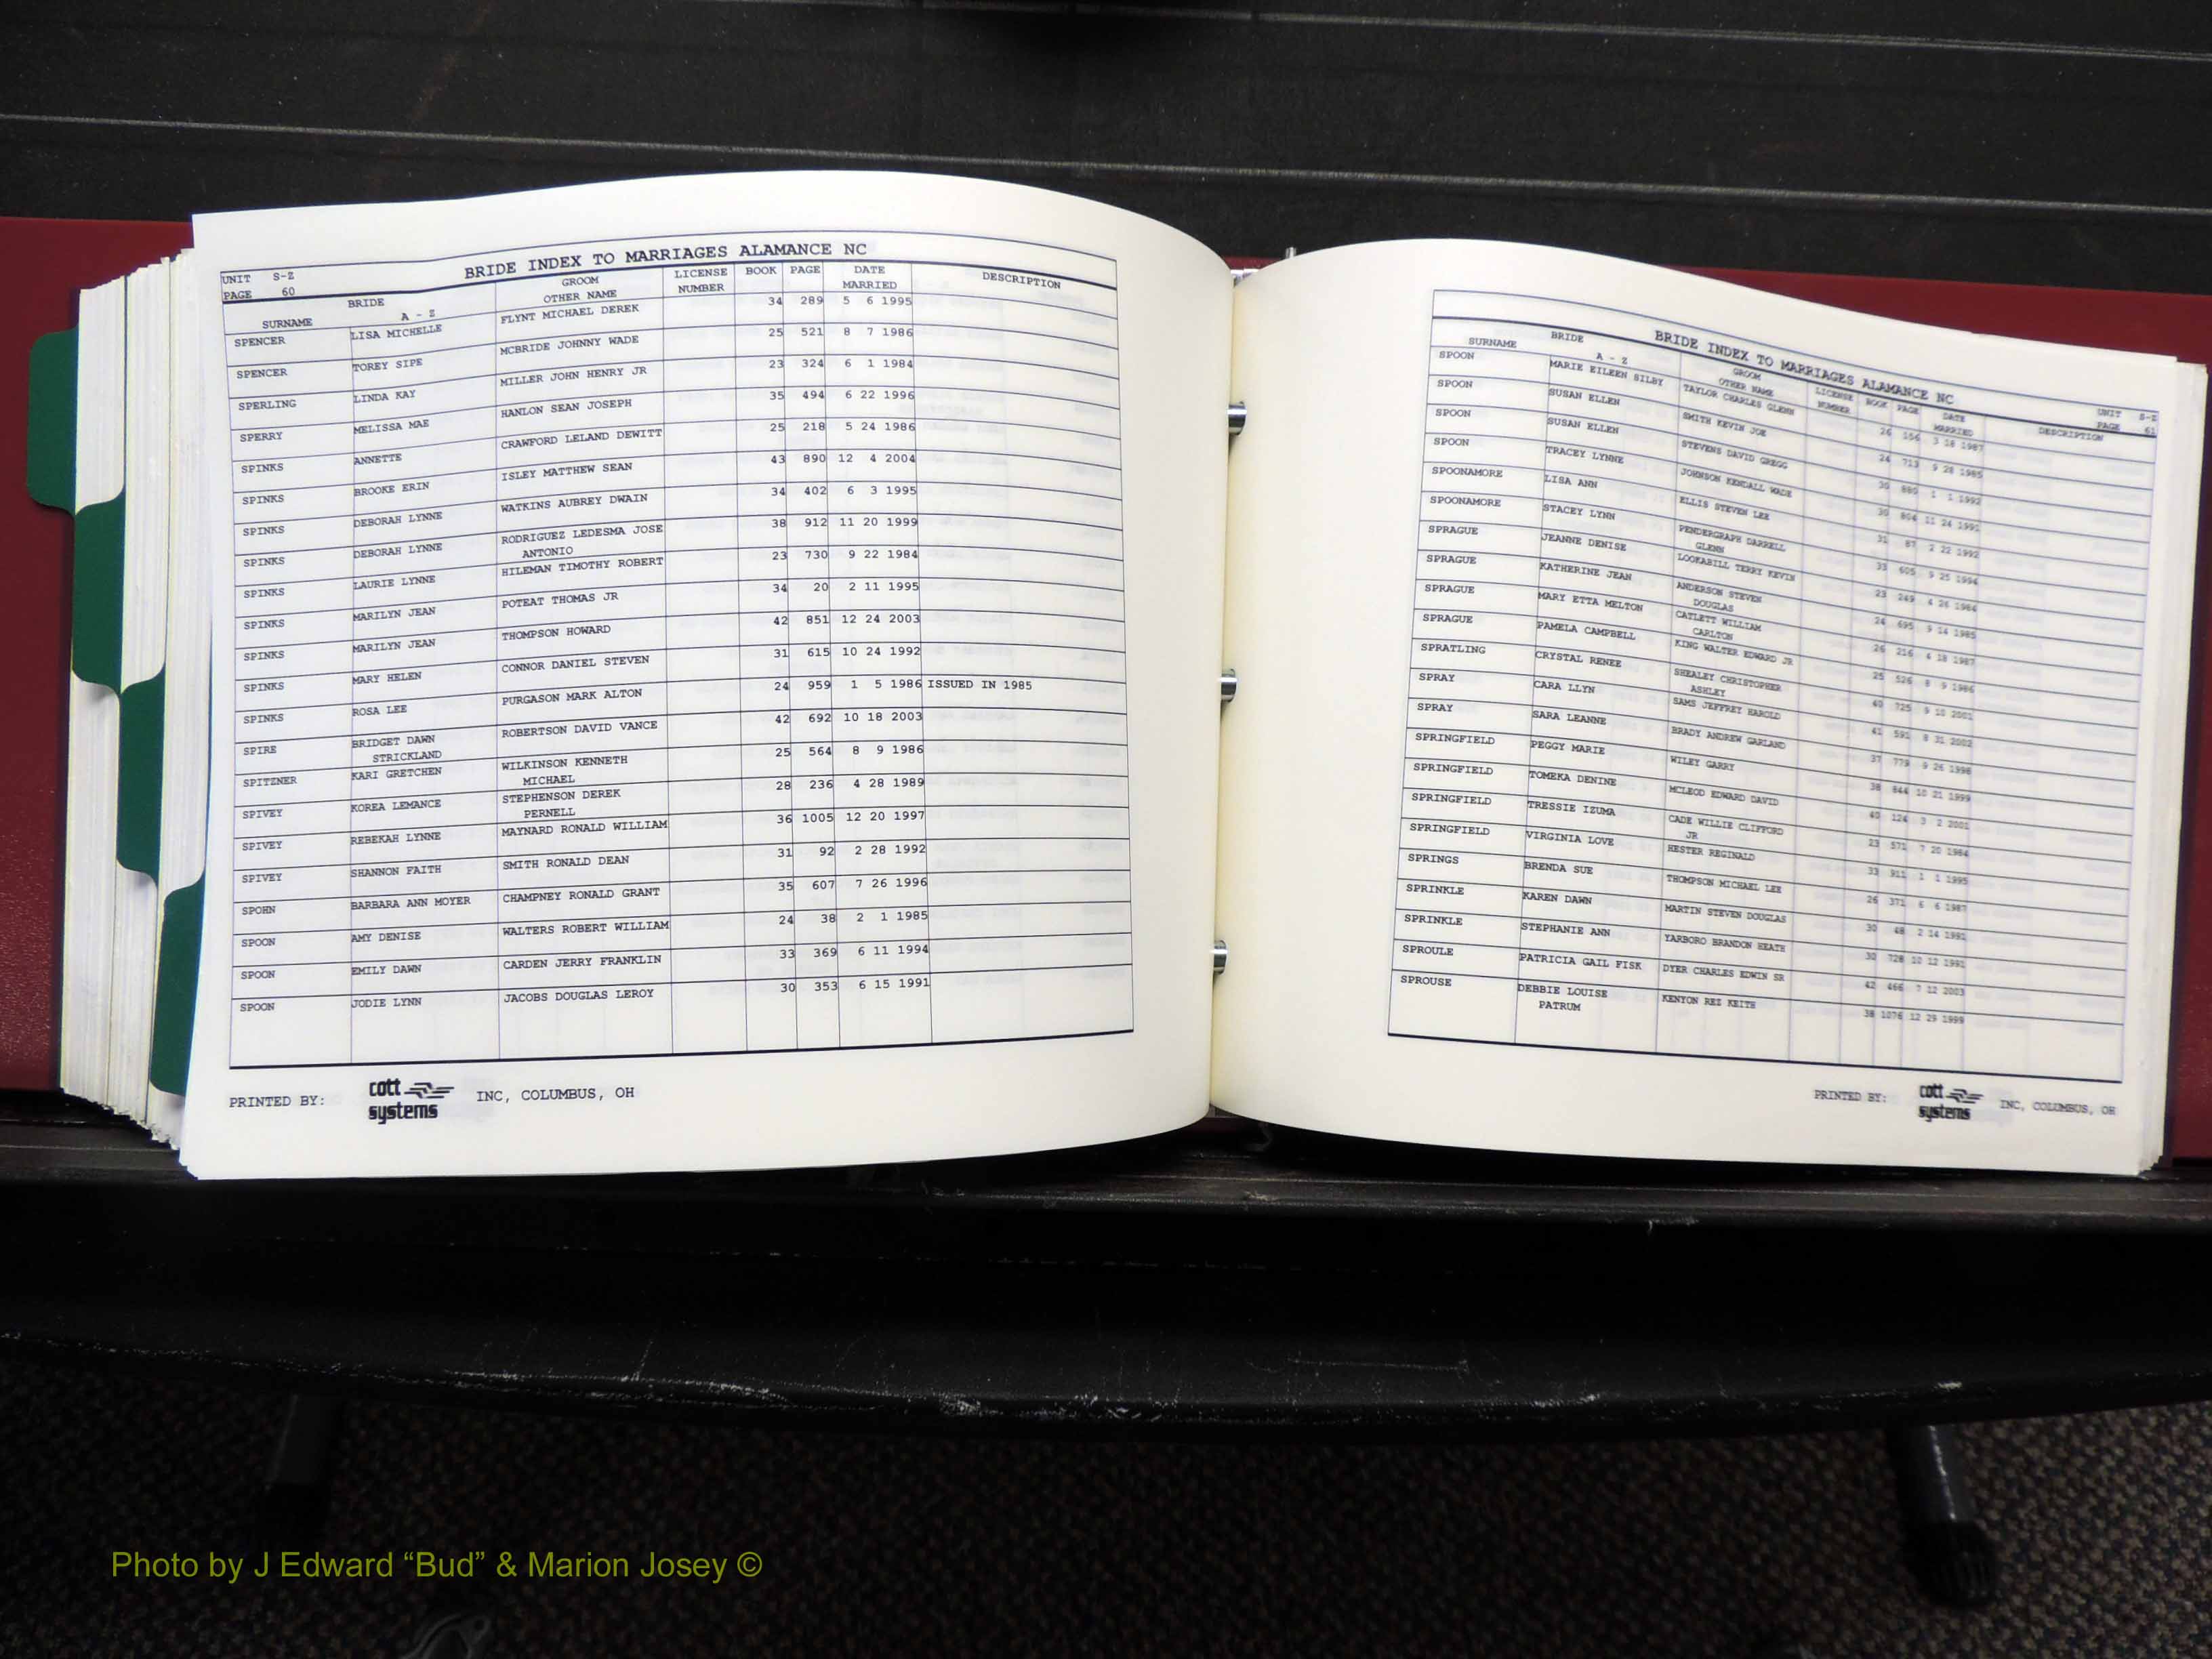 BRIDE INDEX TO MARRIAGES ALAMANCE NC
UNIT S-Z
PAGE 60
BRIDE GROOM LICENSE BOOK PAGE DATE DESCRIPTION
SURNAME A - Z OTHER NAME NUMBER MARRIED
SPENCER LISA MICHELLE FLYNT MICHAEL DEREK 34 289 5 6 1995
SPENCER TOREY SIPE MCBRIDE JOHNNY WADE 25 521 8 7 1986
SPERLING LINDA KAY MILLER JOHN HENRY JR 23 324 6 1 1984
SPERRY MELISSA MAE HANLON SEAN JOSEPH 35 494 6 22 1996
SPINKS ANNETTE CRAWFORD LELAND DEWITT 25 218 5 24 1986
SPINKS BROOKE ERIN ISLEY MATTHEW SEAN 43 890 12 4 2004
SPINKS DEBORAH LYNNE WATKINS AUBREY DWAIN 34 402 6 3 1995
SPINKS DEBORAH LYNNE RODRIGUEZ LEDESMA JOSE 38 912 11 20 1999
ANTONIO
SPINKS LAURIE LYNNE HILEMAN TIMOTHY ROBERT 23 730 9 22 1984
SPINKS MARILYN JEAN POTEAT THOMAS JR 34 20 2 11 1995
SPINKS MARILYN JEAN THOMPSON HOWARD 42 851 12 24 2003
SPINKS MARY HELEN CONNOR DANIEL STEVEN 31 615 10 24 1992
SPINKS ROSA LEE PURGASON MARK ALTON 24 959 1 5 1986 ISSUED IN 1985
SPIRE BRIDGET DAWN ROBERTSON DAVID VANCE 42 692 10 18 2003
STRICKLAND
SPITZNER KARI GRETCHEN WILKINSON KENNETH 25 564 8 9 1986
MICHAEL
SPIVEY KOREA LEMANCE STEPHENSON DEREK 28 236 4 28 1989
PERNELL
SPIVEY REBEKAH LYNNE MAYNARD RONALD WILLIAM 36 1005 12 20 1997
SPIVEY SHANNON FAITH SMITH RONALD DEAN 31 92 2 28 1992
SPOHN BARBARA ANN MOYER CHAMPNEY RONALD GRANT 35 607 7 26 1996
SPOON AMY DENISE WALTERS ROBERT WILLIAM 24 38 2 1 1985
SPOON EMILY DAWN CARDEN JERRY FRANKLIN 33 369 6 11 1994
SPOON JODIE LYNN JACOBS DOUGLAS LEROY 30 353 6 15 1991
PRINTED BY: cott systems INC, COLUMBUS, OH
BRIDE INDEX TO MARRIAGES ALAMANCE NC
UNIT S-Z
PAGE 61
BRIDE GROOM LICENSE BOOK PAGE DATE DESCRIPTION
SURNAME A - Z OTHER NAME NUMBER MARRIED
SPOON MARIE EILEEN SILBY TAYLOR CHARLES GLENN 26 156 3 18 1987
SPOON SUSAN ELLEN SMITH KEVIN JOE 24 713 9 28 1985
SPOON SUSAN ELLEN STEVENS DAVID GREGG 30 1 1 1992
SPOON TRACEY LYNNE JOHNSON KENDALL WADE 30 804 11 24 1991
SPOONAMORE LISA ANN ELLIS STEVEN LEE 31 87 2 22 1992
SPOONAMORE STACEY LYNN PENDERGRAPH DARRELL 33 605 9 25 1994
GLENN
SPRAGUE JEANNE DENISE LOOKABILL TERRY KEVIN 23 249 4 26 1984
SPRAGUE KATHERINE JEAN ANDERSON STEVEN 24 695 9 14 1985
DOUGLAS
SPRAGUE MARY ETTA MELTON CATLETT WILLIAM 26 216 4 18 1987
CARLTON
SPRAGUE PAMELA CAMPBELL KING WALTER EDWARD JR 25 526 8 9 1986
SPRATLING CRYSTAL RENEE SHEALEY CHRISTOPHER 40 725 9 10 2001
ASHLEY
SPRAY CARA LLYN SAMS JEFFREY HAROLD 41 591 8 31 2002
SPRAY SARA LEANNE BRADY ANDREW GARLAND 37 779 9 26 1998
SPRINGFIELD PEGGY MARIE WILEY GARRY 38 844 10 21 1999
SPRINGFIELD TOMEKA DENINE MCLEOD EDWARD DAVID 40 124 3 2 2001
SPRINGFIELD TRESSIE IZUMA CADE WILLIE CLIFFORD 23 571 7 20 1984
JR
SPRINGFIELD VIRGINIA LOVE HESTER REGINALD 33 911 1 1 1995
SPRINGS BRENDA SUE THOMPSON MICHAEL LEE 26 371 6 6 1987
SPRINKLE KAREN DAWN MARTIN STEVEN DOUGLAS 30 48 2 14 1991
SPRINKLE STEPHANIE ANN YARBORO BRANDON HEATH 30 728 10 12 1991
SPROULE PATRICIA GAIL FISK DYER CHARLES EDWIN SR 42 466 7 12 2003
SPROUSE DEBBIE LOUISE KENYON REZ KEITH 38 1076 12 29 1999
PATRUM
PRINTED BY: cott systems INC, COLUMBUS, OH
Photo by J Edward “Bud” & Marion Josey ©